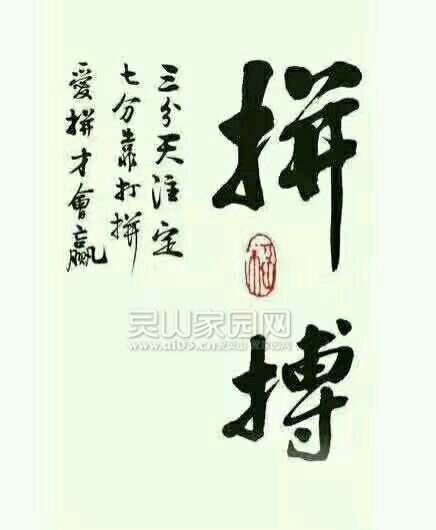 拼搏
三分天注定
七分靠打拼
愛拼才會贏
灵山家园网
www.ai03.cn爱灵山 爱家园网